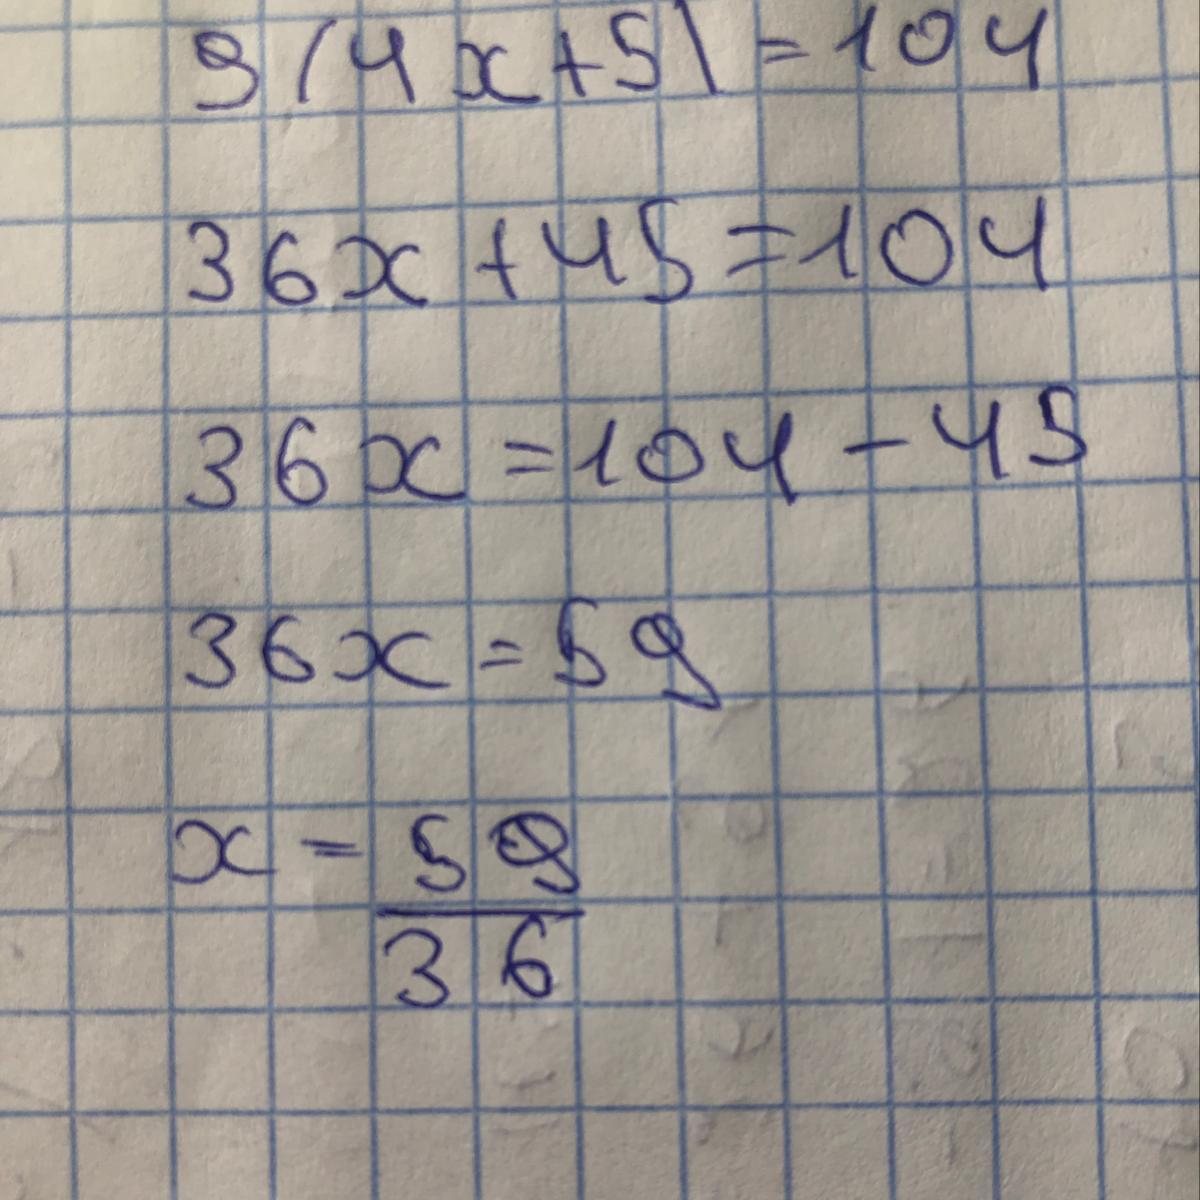 9(4x+5)=104
36x+45=104
36x=104-45
36x=59
x=59
36